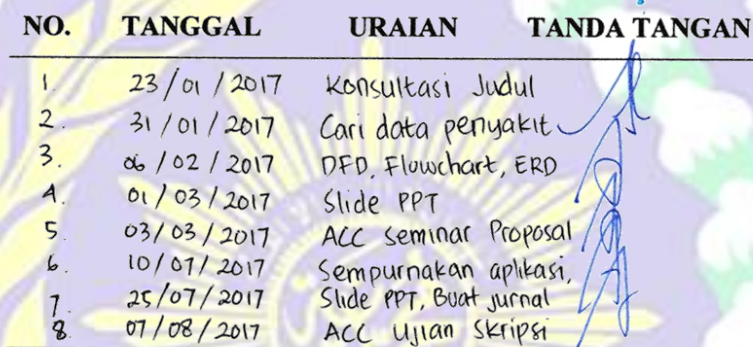 NO. TANGGAL URAIAN TANDA TANGAN
1. 23/01/2017 Konsultasi Judul
2. 31/01/2017 Cari data penyakit
3. 06/02/2017 DFD, Flowchart, ERD
4. 01/03/2017 Slide PPT
5. 03/03/2017 ACC Seminar Proposal
6. 10/07/2017 Sempurnakan aplikasi,
7. 25/07/2017 Slide PPT, Buat jurnal
8. 07/08/2017 ACC Ujian Skripsi